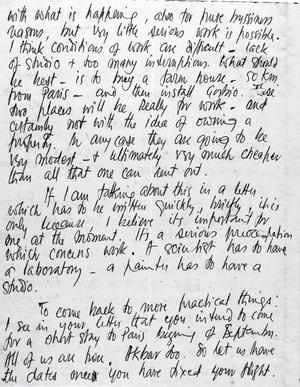 with what is happening, also for pure bussiness
reasons, but very little serious work is possible.
I think conditions of work are difficult – lack
of studio + too many interruptions. What should
be best – is to buy a farm house – 50 Km
from Paris – and then install Gorbio. These
two places will be, really for work – and
certainly not with the idea of owning a
property. In any case they are going to be
very modest – & ultimately very much cheaper
than all that one can rent out.
If I am talking about this in a letter
which has to be written quickly, briefly, it is
only because I believe it's important for
one at the moment. It's a serious preoccupation
which concerns work. A scientist has to have
a laboratory – a painter has to have a
studio.
To come back to more practical things:
I see in your letter that you intend to come
for a short stay to Paris beginning of September.
All of us are here. Akbar too. So let us have
the dates once you have fixed your flight.